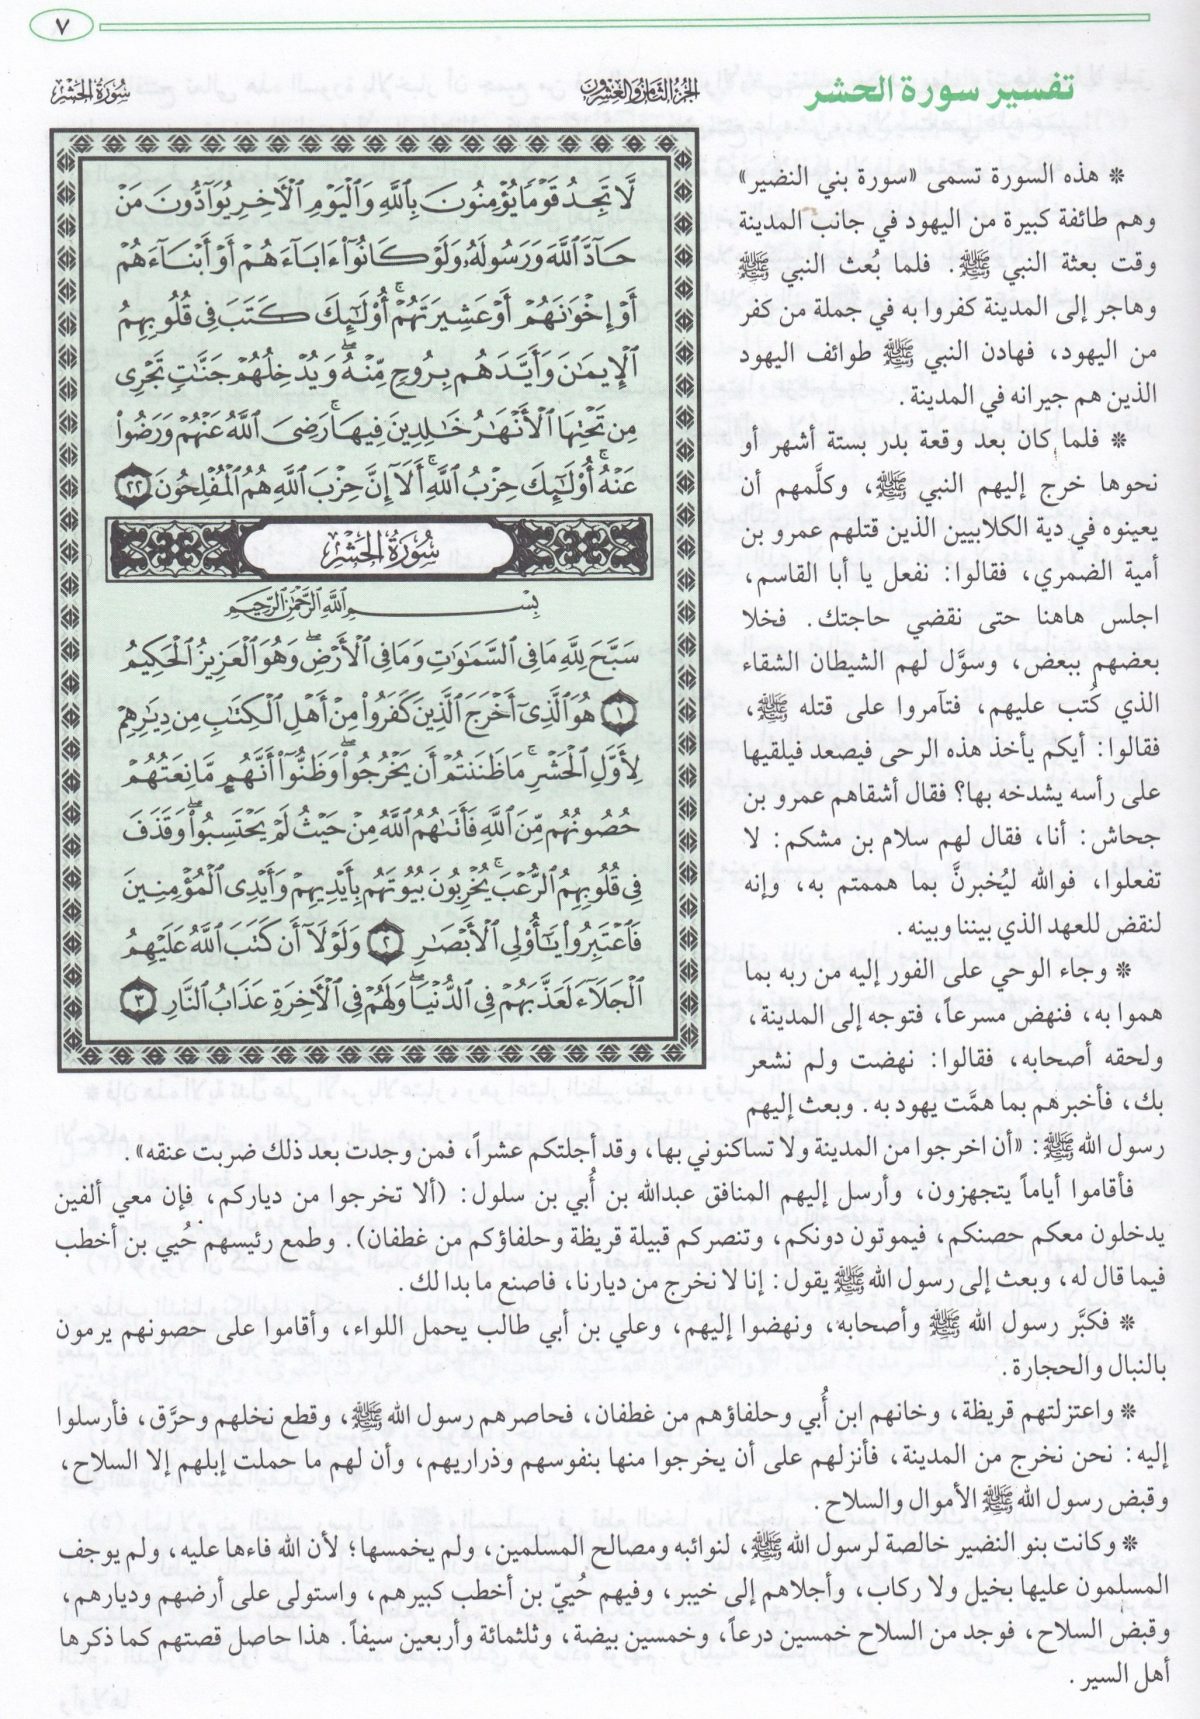 ٧
تفسير سورة الحشر
الجزء الثامن والعشرون
سورة الحشر
لَّا تَجِدُ قَوْمًا يُؤْمِنُونَ بِاللَّهِ وَالْيَوْمِ الْآخِرِ يُوَادُّونَ مَنْ
حَادَّ اللَّهَ وَرَسُولَهُ وَلَوْ كَانُوا آبَاءَهُمْ أَوْ أَبْنَاءَهُمْ
أَوْ إِخْوَانَهُمْ أَوْ عَشِيرَتَهُمْ أُولَٰئِكَ كَتَبَ فِي قُلُوبِهِمُ
الْإِيمَانَ وَأَيَّدَهُم بِرُوحٍ مِّنْهُ وَيُدْخِلُهُمْ جَنَّاتٍ تَجْرِي
مِن تَحْتِهَا الْأَنْهَارُ خَالِدِينَ فِيهَا رَضِيَ اللَّهُ عَنْهُمْ وَرَضُوا
عَنْهُ أُولَٰئِكَ حِزْبُ اللَّهِ أَلَا إِنَّ حِزْبَ اللَّهِ هُمُ الْمُفْلِحُونَ ٢٢
سُورَةُ الحَشْرِ
بِسْمِ اللَّهِ الرَّحْمَٰنِ الرَّحِيمِ
سَبَّحَ لِلَّهِ مَا فِي السَّمَاوَاتِ وَمَا فِي الْأَرْضِ وَهُوَ الْعَزِيزُ الْحَكِيمُ
١ هُوَ الَّذِي أَخْرَجَ الَّذِينَ كَفَرُوا مِنْ أَهْلِ الْكِتَابِ مِن دِيَارِهِمْ
لِأَوَّلِ الْحَشْرِ مَا ظَنَنتُمْ أَن يَخْرُجُوا وَظَنُّوا أَنَّهُم مَّانِعَتُهُمْ
حُصُونُهُم مِّنَ اللَّهِ فَأَتَاهُمُ اللَّهُ مِنْ حَيْثُ لَمْ يَحْتَسِبُوا وَقَذَفَ
فِي قُلُوبِهِمُ الرُّعْبَ يُخْرِبُونَ بُيُوتَهُم بِأَيْدِيهِمْ وَأَيْدِي الْمُؤْمِنِينَ
فَاعْتَبِرُوا يَا أُولِي الْأَبْصَارِ ٢ وَلَوْلَا أَن كَتَبَ اللَّهُ عَلَيْهِمُ
الْجَلَاءَ لَعَذَّبَهُمْ فِي الدُّنْيَا وَلَهُمْ فِي الْآخِرَةِ عَذَابُ النَّارِ ٣
* هذه السورة تسمى «سورة بني النضير»
وهم طائفة كبيرة من اليهود في جانب المدينة
وقت بعثة النبي ﷺ. فلما بُعث النبي ﷺ
وهاجر إلى المدينة كفروا به في جملة من كفر
من اليهود، فهادن النبي ﷺ طوائف اليهود
الذين هم جيرانه في المدينة.
* فلما كان بعد وقعة بدر بستة أشهر أو
نحوها خرج إليهم النبي ﷺ، وكلَّمهم أن
يعينوه في دية الكلابيين الذين قتلهم عمرو بن
أمية الضمري، فقالوا: نفعل يا أبا القاسم،
اجلس هاهنا حتى نقضي حاجتك. فخلا
بعضهم ببعض، وسوَّل لهم الشيطان الشقاء
الذي كُتب عليهم، فتآمروا على قتله ﷺ،
فقالوا: أيكم يأخذ هذه الرحى فيصعد فيلقيها
على رأسه يشدخه بها؟ فقال أشقاهم عمرو بن
جحاش: أنا، فقال لهم سلام بن مشكم: لا
تفعلوا، فوالله ليُخبرنَّ بما هممتم به، وإنه
لنقض للعهد الذي بيننا وبينه.
* وجاء الوحي على الفور إليه من ربه بما
هموا به، فنهض مسرعاً، فتوجه إلى المدينة،
ولحقه أصحابه، فقالوا: نهضت ولم نشعر
بك، فأخبرهم بما همَّت يهود به. وبعث إليهم
رسول الله ﷺ: «أن اخرجوا من المدينة ولا تساكنوني بها، وقد أجلتكم عشراً، فمن وجدت بعد ذلك ضربت عنقه».
فأقاموا أياماً يتجهزون، وأرسل إليهم المنافق عبدالله بن أُبي بن سلول: (ألا تخرجوا من دياركم، فإن معي ألفين
يدخلون معكم حصنكم، فيموتون دونكم، وتنصركم قبيلة قريظة وحلفاؤكم من غطفان). وطمع رئيسهم حُيي بن أخطب
فيما قال له، وبعث إلى رسول الله ﷺ يقول: إنا لا نخرج من ديارنا، فاصنع ما بدا لك.
* فكبَّر رسول الله ﷺ وأصحابه، ونهضوا إليهم، وعلي بن أبي طالب يحمل اللواء، وأقاموا على حصونهم يرمون
بالنبال والحجارة.
* واعتزلتهم قريظة، وخانهم ابن أُبي وحلفاؤهم من غطفان، فحاصرهم رسول الله ﷺ، وقطع نخلهم وحرَّق، فأرسلوا
إليه: نحن نخرج من المدينة، فأنزلهم على أن يخرجوا منها بنفوسهم وذراريهم، وأن لهم ما حملت إبلهم إلا السلاح،
وقبض رسول الله ﷺ الأموال والسلاح.
* وكانت بنو النضير خالصة لرسول الله ﷺ، لنوائبه ومصالح المسلمين، ولم يخمسها؛ لأن الله فاءها عليه، ولم يوجف
المسلمون عليها بخيل ولا ركاب، وأجلاهم إلى خيبر، وفيهم حُييّ بن أخطب كبيرهم، واستولى على أرضهم وديارهم،
وقبض السلاح، فوجد من السلاح خمسين درعاً، وخمسين بيضة، وثلثمائة وأربعين سيفاً. هذا حاصل قصتهم كما ذكرها
أهل السير.